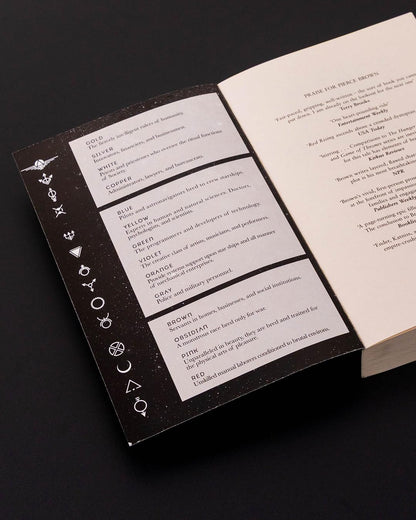 GOLD
The fiercely intelligent rulers of humanity.
SILVER
Innovators, financiers, and businessmen.
WHITE
Priests and priestesses who oversee the ritual functions
of Society.
COPPER
Administrators, lawyers, and bureaucrats.
BLUE
Pilots and astronavigators bred to crew starships.
YELLOW
Experts in human and natural sciences. Doctors,
psychologists, and scientists.
GREEN
The programmers and developers of technology.
VIOLET
The creative class of artists, musicians, and performers.
ORANGE
Provide systems support upon star ships and all manner
of mechanical enterprises.
GRAY
Police and military personnel.
BROWN
Servants in homes, businesses, and social institutions.
OBSIDIAN
A monstrous race bred only for war.
PINK
Unparalleled in beauty, they are bred and trained for
the physical arts of pleasure.
RED
Unskilled manual laborers conditioned to brutal environs.
PRAISE FOR PIERCE BROWN
'Pacy, gripping, well-written – the sort of book you
put down. I am already on the lookout for the next one'
Terry Brooks
Entertainment Weekly
'Red Rising ascends above a crowded
USA Today
Comparison to The
and Game of Thrones series are
but this tale has elements of
Kirkus Reviews
'Brown writes layered,
plot is his most
NPR
'Brown's vivid, first-person
at the forefront of
families and
Publishers Weekly
'A page-turning epic
The conclusion
Booklist
'Ender, Katniss,